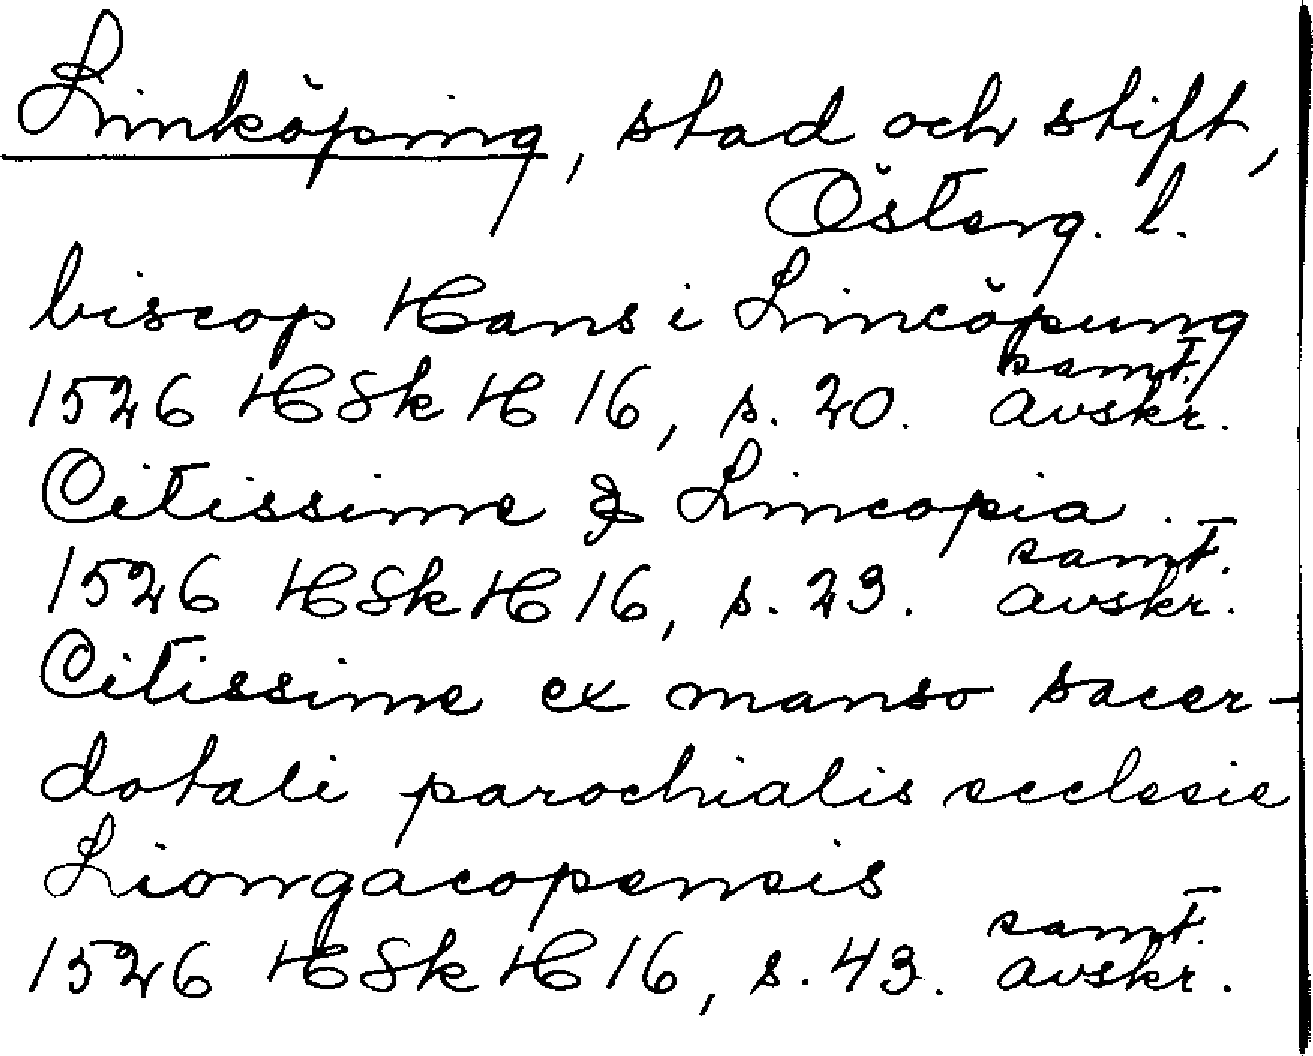 Linköping, stad och stift,
Österg. l.
biscop Hans i Lincöpung
samt.
1526 HSk H 16, s. 20. avskr.
Citissime & Lincopia.
samt.
1526 HSk H 16, s. 23. avskr.
Citissime ex manso sacer-
dotali parochialis ecclesie
Liongacopensis
samt.
1526 HSk H 16, s. 43. avskr.